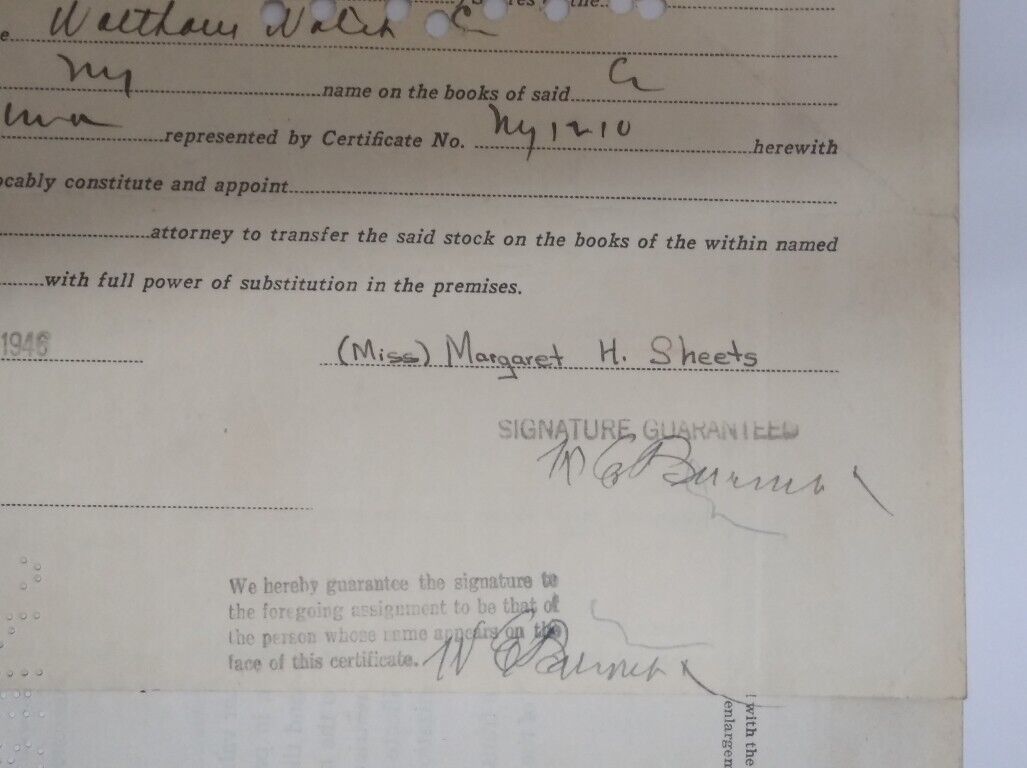 the
e Waltham Watch C
my name on the books of said Co
represented by Certificate No. Ny 1210 herewith
ocably constitute and appoint
attorney to transfer the said stock on the books of the within named
with full power of substitution in the premises.
1946 (Miss) Margaret H. Sheets
SIGNATURE GUARANTEED
We hereby guarantee the signature to
the foregoing assignment to be that of
the person whose name appears on the
face of this certificate.
! with the
enlargem